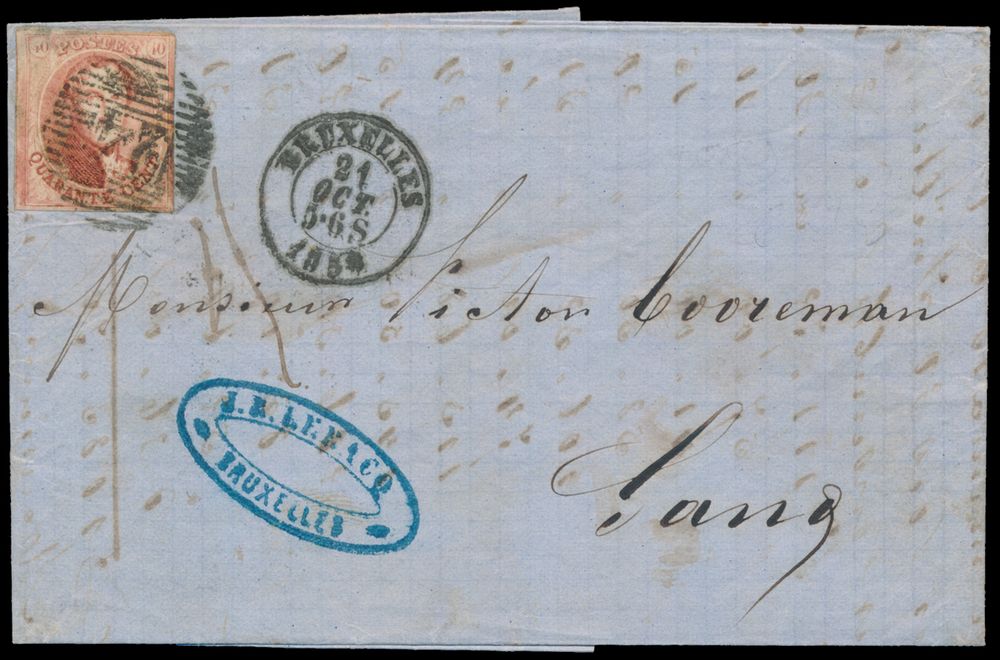 40 POSTES 40
QUARANTE CENT
BRUXELLES
21
OCT.
5-6S
Monsieur Victor Cooreman
J.B. LEBACQ
BRUXELLES
Gand